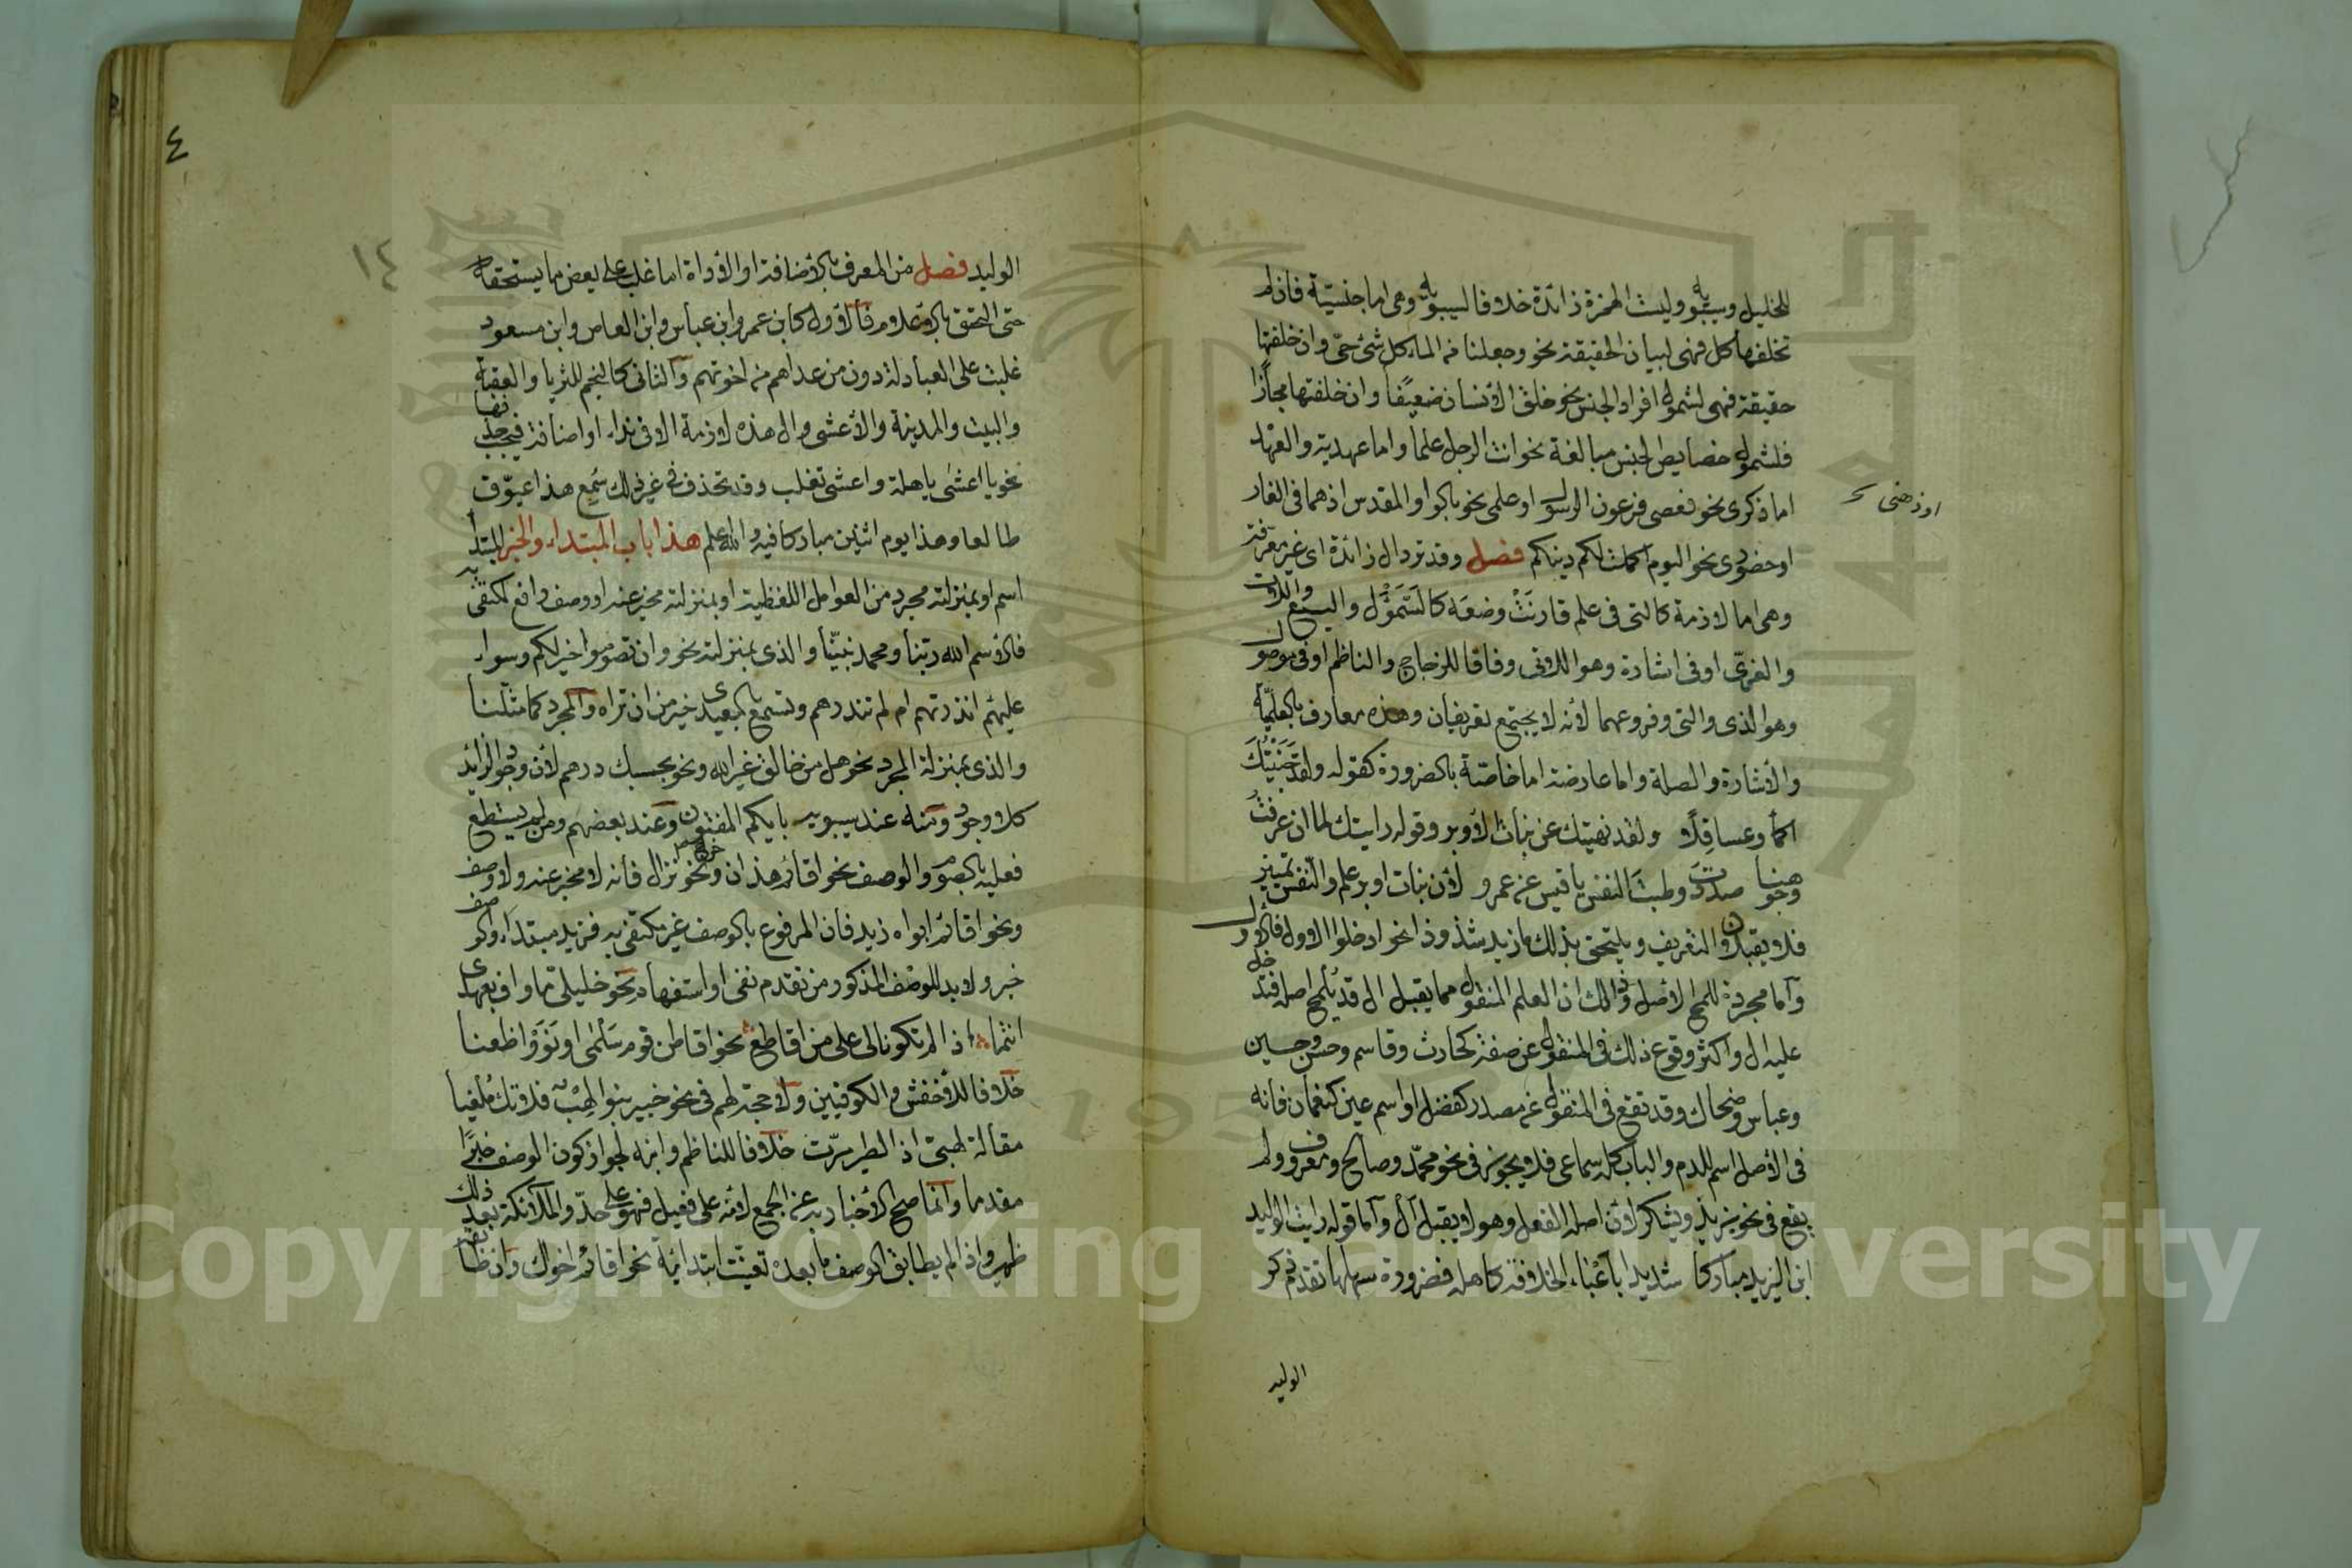 للخليل وسيبويه وليست الهمزة زائدة خلافا لسيبويه وهى اما جنسيّة فان لم
تخلفها كل فهى لبيان الحقيقة نحو وجعلنا من الماء كل شئ حىّ وان خلفتها
حقيقة فهى لشمول افراد الجنس نحو خلق الأنسان ضعيفًا وان خلفتها مجازًا
فلشمول خصايص الجنس مبالغة نحو انت الرجل علما واما عهدية والعهد
اما ذكرى نحو فعصى فرعون الرسول او علمى نحو بالواد المقدس اذ هما فى الغار
او ذهنى
او حضورى نحو اليوم اكملت لكم دينكم فصل وقد ترد ال زائدة اى غير معرّفة
وهى اما لازمة كالتى فى علم قارنَتْ وضعَه كالسَّمَوْءَل واليسع واللات
والعزّى او فى اشارة وهو الان وفاقا للزجاج والناظم او فى موصول
وهو الذى والتى وفروعهما لأنه لا يجتمع تعريفان وهذه معارف بالعلميّة
والأشارة والصلة واما عارضة اما خاصّة بالضرورة كقوله ولقد جَنَيْتُكَ
اكمأ وعساقِلًا ولقد نهيتك عن بنات الأوبر وقوله رايتك لما ان عرفتَ
وجوهنا صددتَ وطبتَ النفس يا قيس عن عمرو لأن بنات اوبر علم والنفس تمييز
فلا يقبلان التعريف ويلتحق بذلك ما زيد شذوذا نحو ادخلوا الاول فالاول
وآما مجوزة للمح الأصل وذالك ان العلم المنقول مما يقبل ال قد يُلمح اصله فتدخل
عليه ال واكثر وقوع ذلك فى المنقول عن صفة كحارث وقاسم وحسن وحسين
وعباس وضحاك وقد تقع فى المنقول عن مصدر كفضل او اسم عين كنعمان فانه
فى الأصل اسم للدم والباب كله سماعى فلا يجوز فى نحو محمّد وصالح ومعروف ولم
يقع فى نحو يزيد ويشكر لأن اصله الفعل وهو لا يقبل أل وآما قوله رايت الوليد
ابن اليزيد مباركا شديدا بأعْباء الخلافة كاهله فضرورة سهلها تقدم ذكر
الوليد
٤
١٤
الوليد فصل من المعرف بالأضافة او الأداة اما غلب على بعض ما يستحقه
حتى التحق بالأعلام فالأول كابن عمر وابن عباس وابن العاص وابن مسعود
غلبت على العبادلة دون من عداهم من اخوتهم والثانى كالنجم للثريا والعقبة
والبيت والمدينة والأعشى وال هذه لازمة الا فى نداء او اضافة فيجب حذفها
نحو يا اعشى باهلة واعشى تغلب وقد تحذف فى غير ذلك سُمِع هذا عيّوق
طالعا وهذا يوم اثنين مباركا فيه والله اعلم هذا باب المبتداء والخبر المبتدأ
اسم او بمنزلته مجرد من العوامل اللفظية او بمنزلته مخبر عنه او وصف رافع لمكتفى به
فالأسم الله ربّنا ومحمد نبيّنا والذى بمنزلته نحو وان تصوموا خير لكم وسواء
عليهم أنذرتهم ام لم تنذرهم وتسمع بالمعيدى خير من ان تراه والمجرد كما مثّلنا
والذى بمنزلة المجرد نحو هل من خالق غير الله ونحو بحسبك درهم لأن وجود الزائد
كلا وجود ومنه عند سيبويه بأيكم المفتون وعند بعضهم ومن لم يستطع
فعليه بالصوم والوصف نحو اقائم هذان وخرج نحو نزال فانه لا مخبر عنه ولا وصف
ونحو اقائم ابواه زيد فان المرفوع بالوصف غير مكتفى به فزيد مبتداء والوصف
خبر ولا بد للوصف المذكور من تقدم نفى او استفهام نحو خليلىّ ما واف بعهدى
انتما اذا لم تكونا لى على من اقاطع نحو اقاطن قوم سَلْمَى ام نَوَوْا ظعنا
خلافا للأخفش والكوفيين ولا حجة لهم فى نحو خبير بنوا لِهْبٍ فلا تك مُلغيا
مقالة لهبىّ اذا الطير مرّت خلافا للناظم وابنه لجواز كون الوصف خبرًا
مقدما وآنما صح الأخبار به عن الجمع لأنه على فعيل فهو على حدّ والملائكة بعد ذلك
ظهير واذا لم يطابق الوصف ما بعده تعيّنت ابتدائيته نحو اقائم اخواك وان طابقه